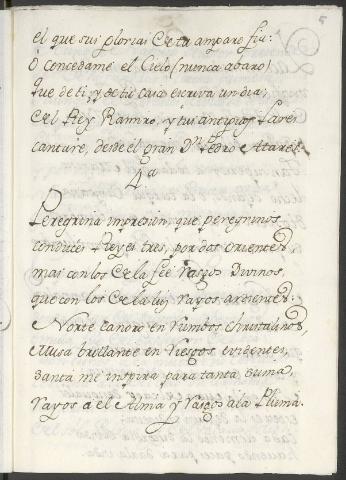 5
el que sus glorias de tu amparo fia:
O concedame el Cielo (nunca abaro)
que de ti, y de tu Casa escriva un dia;
del Rey Ramiro, y tus
cantare, desde el gran Dn. Pedro Atarés.
4a
Peregrina impresion, que peregrinos
conduces Reyes tres, por dos orientes
mas con los de la feè rasgos Divinos,
que con los de la luz rayos ardientes:
Norte canoro en rumbos christalinos,
Musa brillante en riesgos evidentes,
santa me inspira para tanta suma,
rayos a el Alma y rasgos a la Pluma.